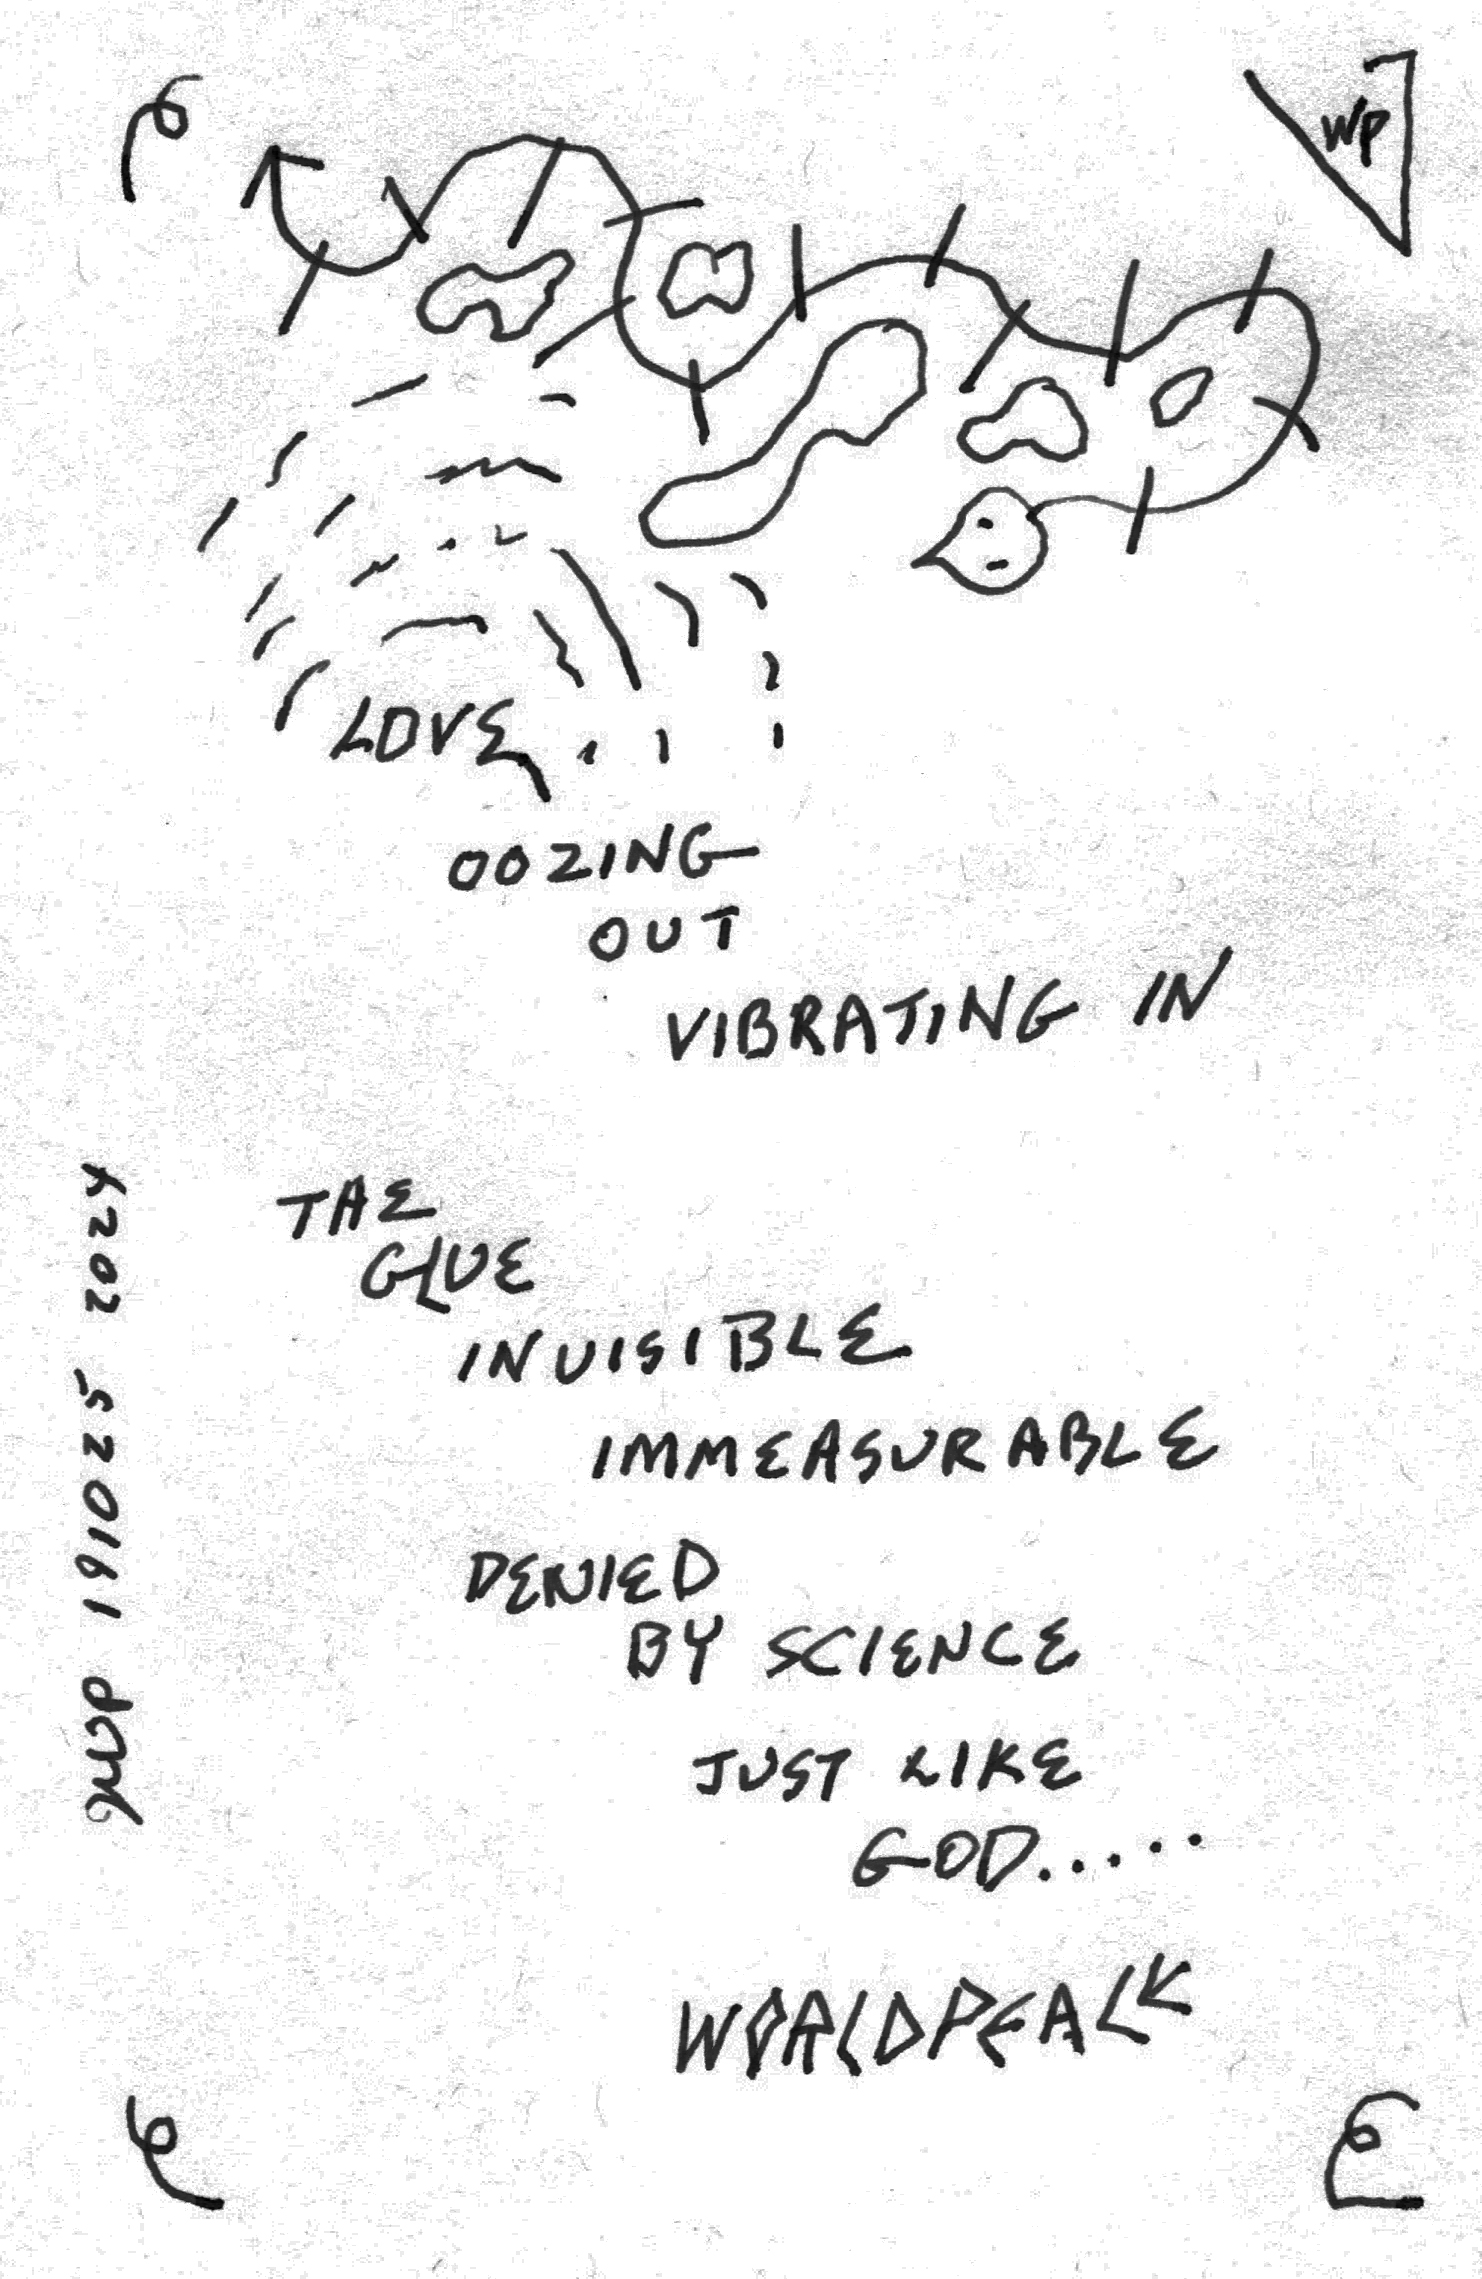 WP
LOVE
OOZING
OUT
VIBRATING IN
THE
GLUE
INVISIBLE
IMMEASURABLE
DENIED
BY SCIENCE
JUST LIKE
GOD.....
WORLDPEACE
191025 2024